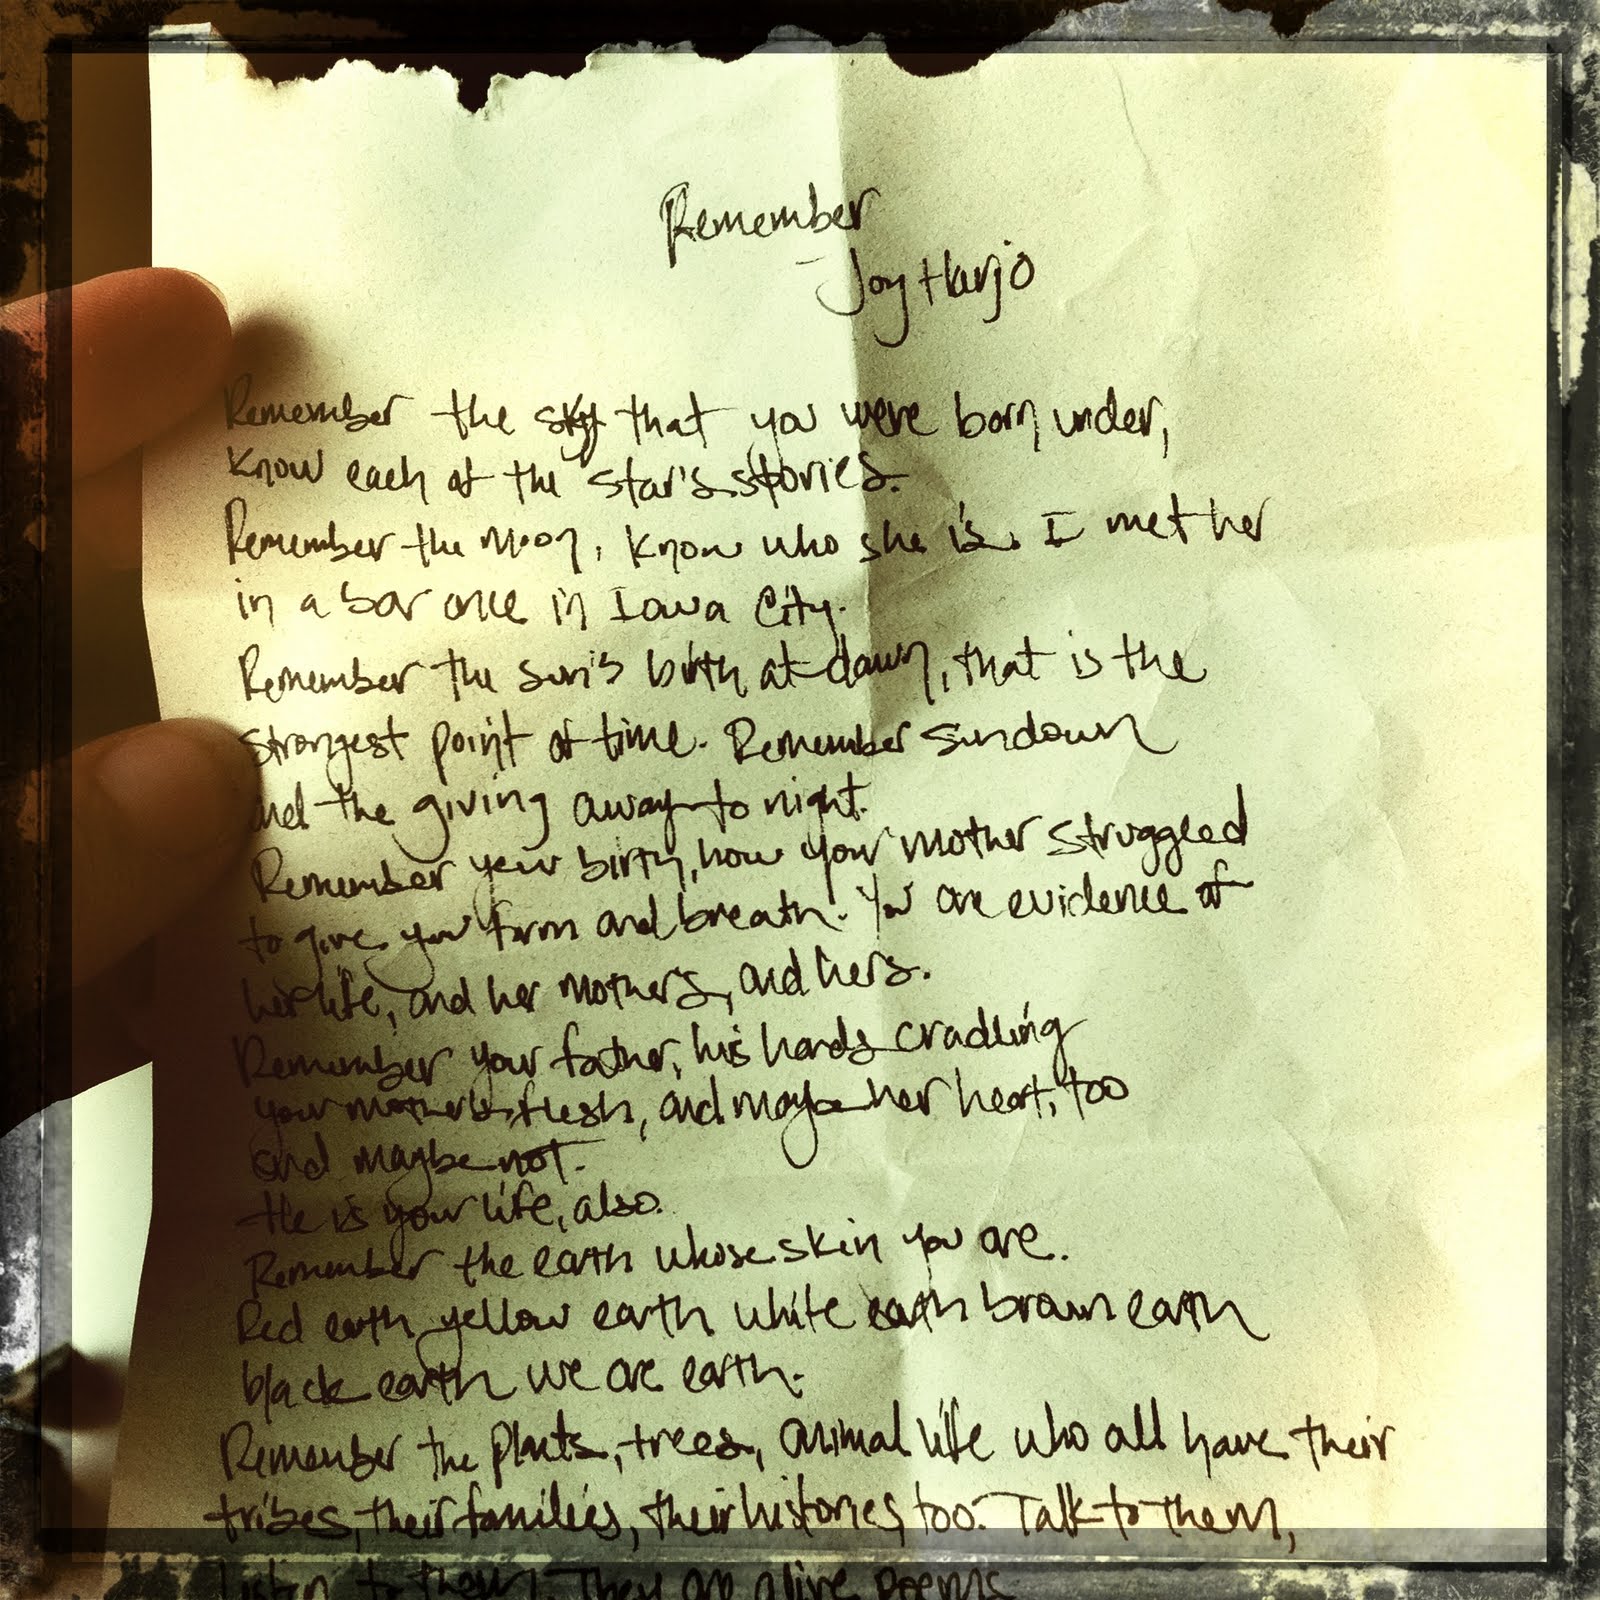 Remember
- Joy Harjo
Remember the sky that you were born under,
Know each of the star's stories.
Remember the Moon, know who she is. I met her
in a bar once in Iowa City.
Remember the sun's birth at dawn, that is the
strongest point of time. Remember sundown
and the giving away to night.
Remember your birth, how your mother struggled
to give you form and breath. You are evidence of
her life, and her mother's, and hers.
Remember your father, his hands cradling
your mother's flesh, and maybe her heart, too
and maybe not.
He is your life, also.
Remember the earth whose skin you are.
Red earth yellow earth white earth brown earth
black earth we are earth.
Remember the plants, trees, animal life who all have their
tribes, their families, their histories, too. Talk to them,
listen to them. They are alive poems